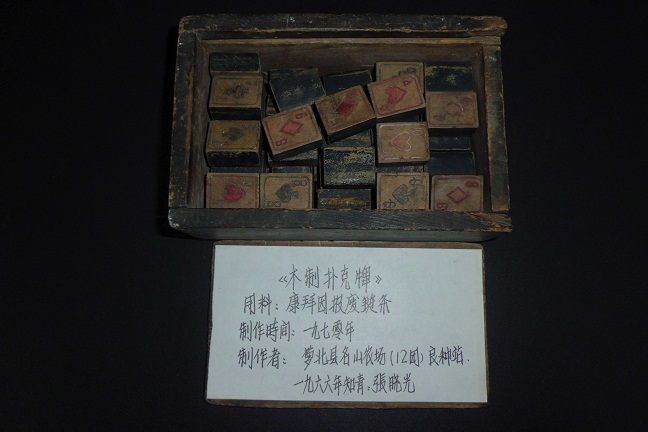 《木制扑克牌》
用料：康拜因报废鍵条
制作時间：一九七零年
制作者：萝北县名山农场(12团)良种站.
一九六六年知青：張晓光